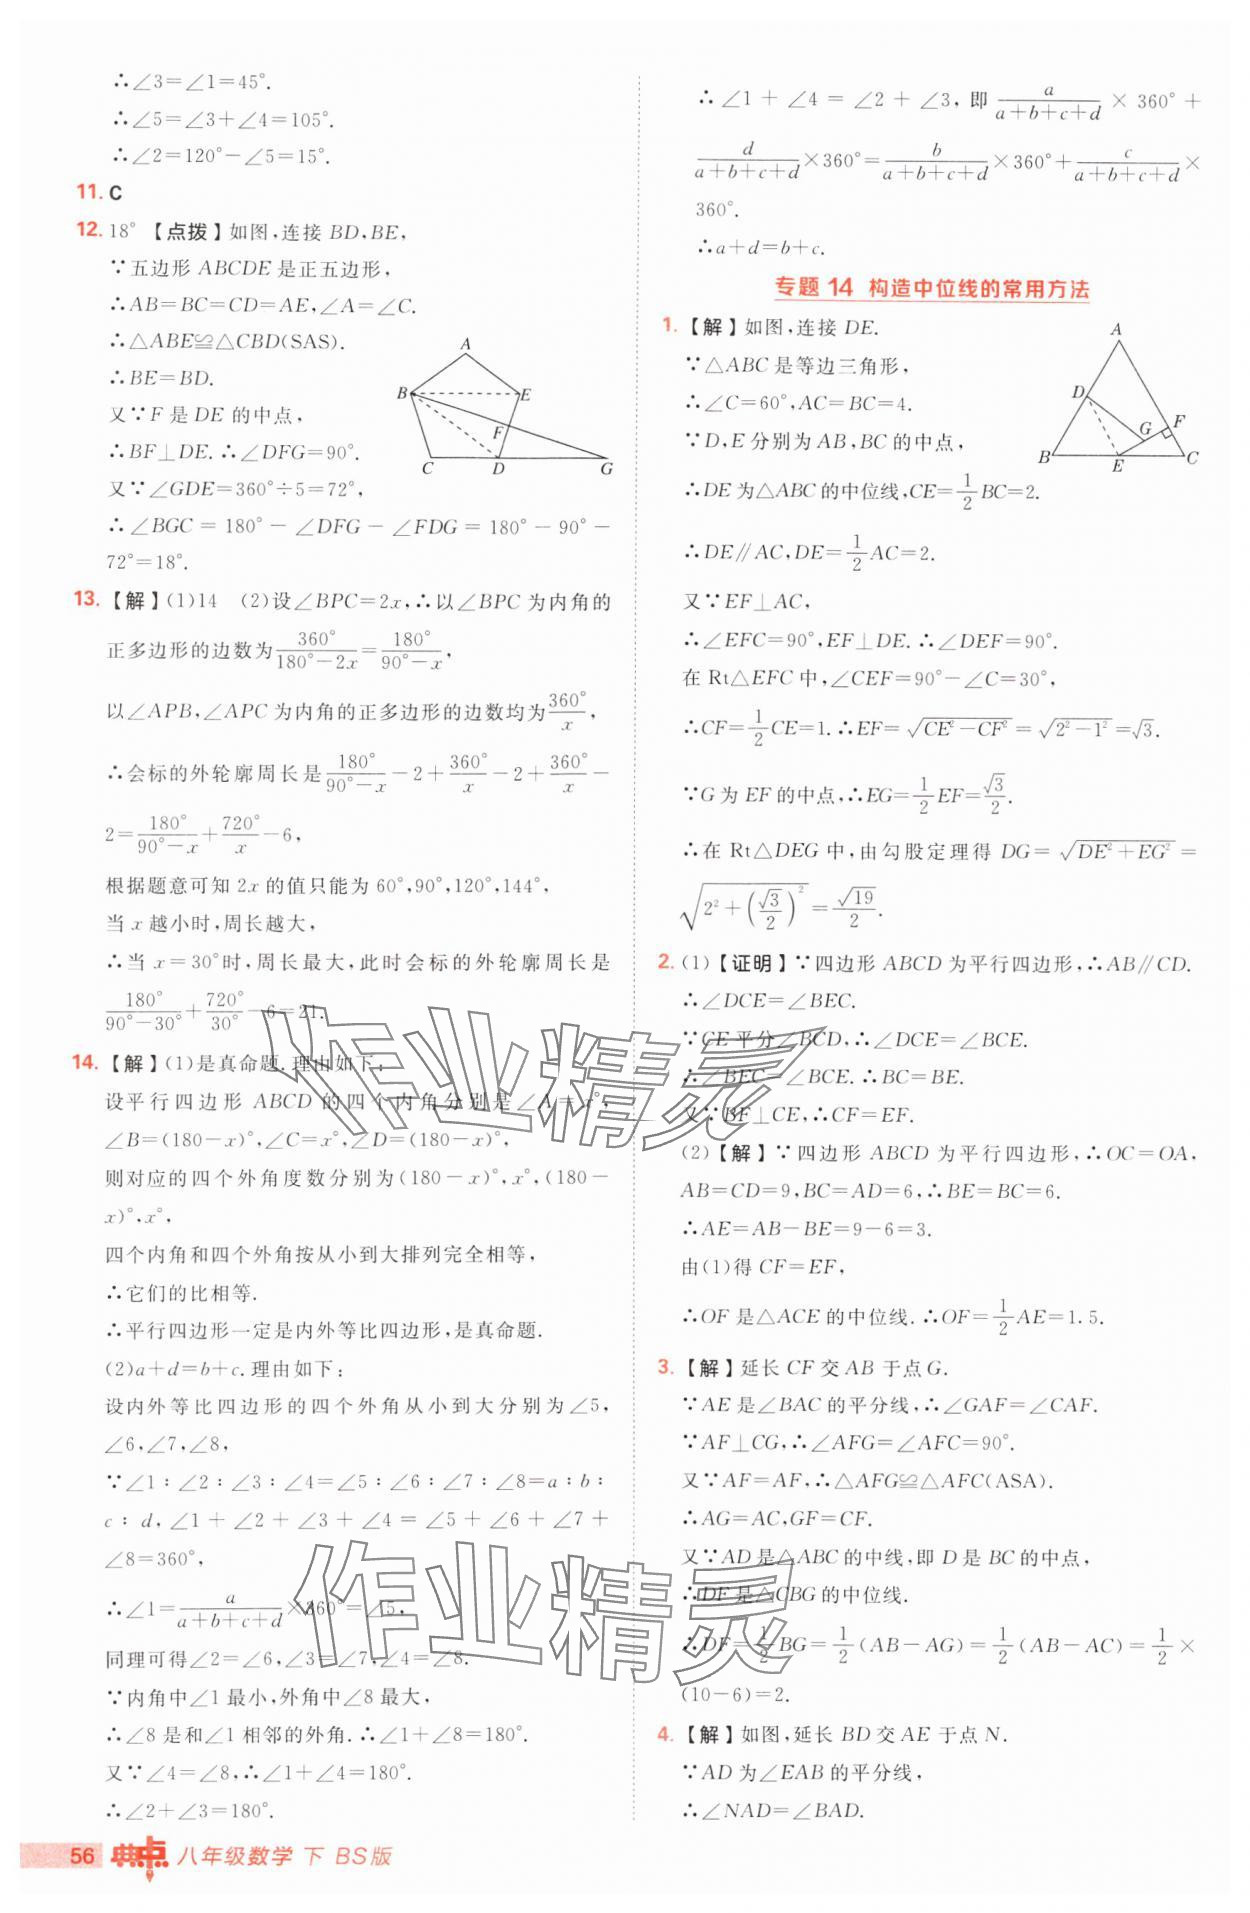 ∴∠3=∠1=45°.
∴∠5=∠3+∠4=105°.
∴∠2=120°-∠5=15°.
11. C
12. 18° 【点拨】如图,连接 BD,BE,
∵五边形 ABCDE 是正五边形,
∴AB=BC=CD=AE,∠A=∠C.
∴△ABE≌△CBD(SAS).
∴BE=BD.
又∵F 是 DE 的中点,
∴BF⊥DE.∴∠DFG=90°.
又∵∠GDE=360°÷5=72°,
∴∠BGC=180°-∠DFG-∠FDG=180°-90°-
72°=18°.
A
B
E
F
C
D
G
13. 【解】(1)14 (2)设∠BPC=2x,∴以∠BPC 为内角的
正多边形的边数为360°/(180°-2x)=180°/(90°-x),
以∠APB,∠APC 为内角的正多边形的边数均为360°/x,
∴会标的外轮廓周长是180°/(90°-x)-2+360°/x-2+360°/x-
2=180°/(90°-x)+720°/x-6,
根据题意可知 2x 的值只能为 60°,90°,120°,144°,
当 x 越小时,周长越大,
∴当 x=30°时,周长最大,此时会标的外轮廓周长是
180°/(90°-30°)+720°/30°-6=21.
14. 【解】(1)是真命题.理由如下:
设平行四边形 ABCD 的四个内角分别是∠A=x°,
∠B=(180-x)°,∠C=x°,∠D=(180-x)°,
则对应的四个外角度数分别为(180-x)°,x°,(180-
x)°,x°,
四个内角和四个外角按从小到大排列完全相等,
∴它们的比相等.
∴平行四边形一定是内外等比四边形,是真命题.
(2)a+d=b+c.理由如下:
设内外等比四边形的四个外角从小到大分别为∠5,
∠6,∠7,∠8,
∵∠1∶∠2∶∠3∶∠4=∠5∶∠6∶∠7∶∠8=a∶b∶
c∶d,∠1+∠2+∠3+∠4=∠5+∠6+∠7+
∠8=360°,
∴∠1=a/(a+b+c+d)×360°=∠5,
同理可得∠2=∠6,∠3=∠7,∠4=∠8.
∵内角中∠1 最小,外角中∠8 最大,
∴∠8 是和∠1 相邻的外角.∴∠1+∠8=180°.
又∵∠4=∠8,∴∠1+∠4=180°.
∴∠2+∠3=180°.
∴∠1+∠4=∠2+∠3,即a/(a+b+c+d)×360°+
d/(a+b+c+d)×360°=b/(a+b+c+d)×360°+c/(a+b+c+d)×
360°.
∴a+d=b+c.
专题 14 构造中位线的常用方法
1. 【解】如图,连接 DE.
∵△ABC 是等边三角形,
∴∠C=60°,AC=BC=4.
∵D,E 分别为 AB,BC 的中点,
∴DE 为△ABC 的中位线,CE=1/2BC=2.
∴DE∥AC,DE=1/2AC=2.
又∵EF⊥AC,
∴∠EFC=90°,EF⊥DE.∴∠DEF=90°.
在 Rt△EFC 中,∠CEF=90°-∠C=30°,
∴CF=1/2CE=1.∴EF=√(CE²-CF²)=√(2²-1²)=√3.
∵G 为 EF 的中点,∴EG=1/2EF=√3/2.
∴在 Rt△DEG 中,由勾股定理得 DG=√(DE²+EG²)=
√(2²+(√3/2)²)=√19/2.
A
D
F
G
B
E
C
2. (1)【证明】∵四边形 ABCD 为平行四边形,∴AB∥CD.
∴∠DCE=∠BEC.
∵CE 平分∠BCD,∴∠DCE=∠BCE.
∴∠BEC=∠BCE.∴BC=BE.
又∵BF⊥CE,∴CF=EF.
(2)【解】∵四边形 ABCD 为平行四边形,∴OC=OA,
AB=CD=9,BC=AD=6,∴BE=BC=6.
∴AE=AB-BE=9-6=3.
由(1)得 CF=EF,
∴OF 是△ACE 的中位线.∴OF=1/2AE=1.5.
3. 【解】延长 CF 交 AB 于点 G.
∵AE 是∠BAC 的平分线,∴∠GAF=∠CAF.
∵AF⊥CG,∴∠AFG=∠AFC=90°.
又∵AF=AF,∴△AFG≌△AFC(ASA).
∴AG=AC,GF=CF.
又∵AD 是△ABC 的中线,即 D 是 BC 的中点,
∴DF 是△CBG 的中位线.
∴DF=1/2BG=1/2(AB-AG)=1/2(AB-AC)=1/2×
(10-6)=2.
4. 【解】如图,延长 BD 交 AE 于点 N.
∵AD 为∠EAB 的平分线,
∴∠NAD=∠BAD.
作业精灵
作业精灵
56 典中点 八年级数学 下 BS版